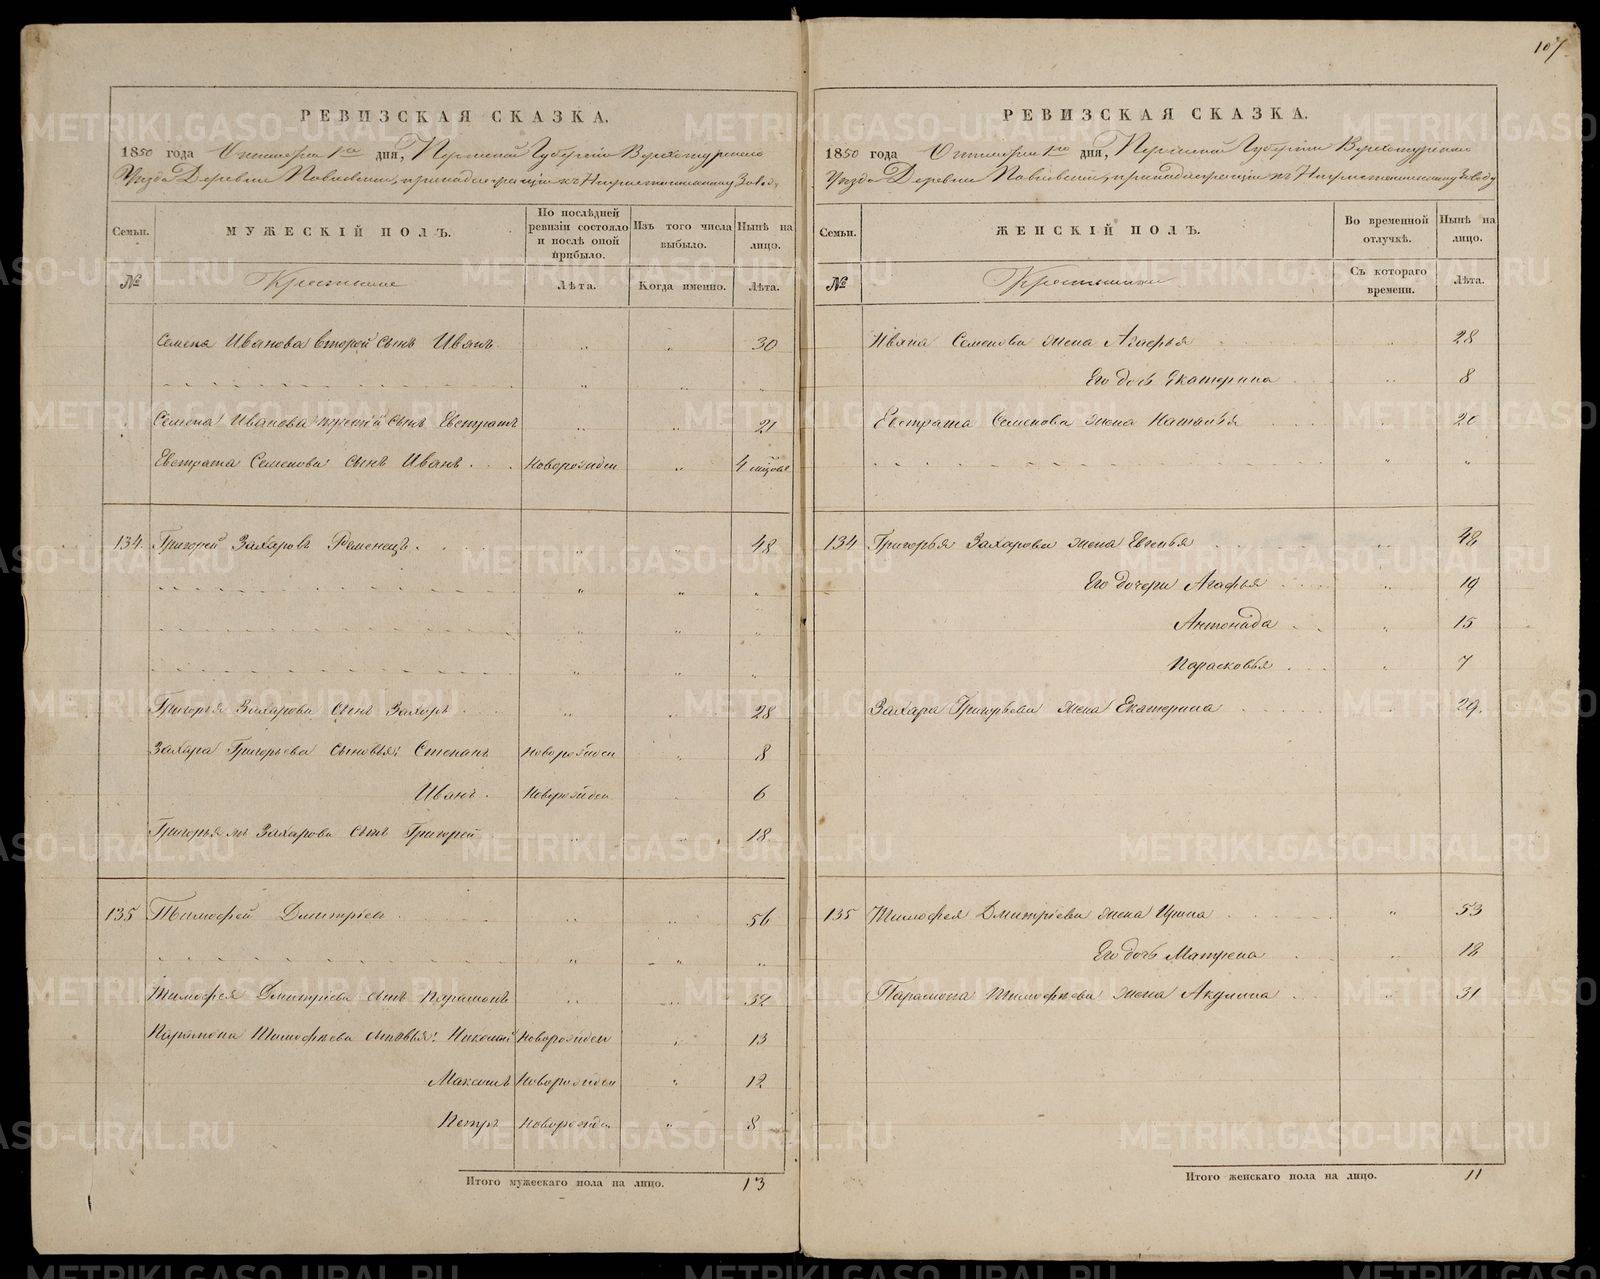 107
РЕВИЗСКАЯ СКАЗКА.
1850 года Октября 1го дня, Пермской Губернии Верхотурскаго
Уезда Деревни Павловской, принадлежащей къ Заводу
Семьи.
МУЖЕСКІЙ ПОЛЪ.
По послѣдней ревизіи состояло и послѣ оной прибыло.
Изъ того числа выбыло.
Нынѣ на лицо.
№
Крестьяне
Лѣта.
Когда именно.
Лѣта.
Семена Иванова второй сынъ Иванъ 30
Семена Иванова третій сынъ Евстратъ 21
Евстрата Семенова сынъ Иванъ Новорожден 4 мѣсяц
134 Григорей Захаровъ Раменецъ 48
Григорья Захарова сынъ Захаръ 28
Захара Григорьева сыновья: Степанъ Новорожден 8
Иванъ Новорожден 6
Григорья Захарова сынъ Григорей 18
135 Тимофей Дмитріев 56
Тимофея Дмитріева сынъ Парамонъ 32
Парамона Тимофѣева сыновья: Николай Новорожден 13
Максимъ Новорожден 12
Петръ Новорожден 8
Итого мужескаго пола на лицо. 13
РЕВИЗСКАЯ СКАЗКА.
1850 года Октября 1го дня, Пермской Губернии Верхотурскаго
Уезда Деревни Павловской, принадлежащей къ Заводу
Семьи.
ЖЕНСКІЙ ПОЛЪ.
Во временной отлучкѣ.
Нынѣ на лицо.
№
Крестьянки
Съ котораго времени.
Лѣта.
Ивана Семенова жена Агафья 28
Его дочь Екатерина 8
Евстрата Семенова жена Наталья 20
134 Григорья Захарова жена Евгенья 48
Его дочери Агафья 19
Антонида 15
Парасковья 7
Захара Григорьева жена Екатерина 29
135 Тимофея Дмитріева жена Ирина 53
Его дочь Матрена 18
Парамона Тимофѣева жена Акулина 31
Итого женскаго пола на лицо. 11
METRIKI.GASO-URAL.RU